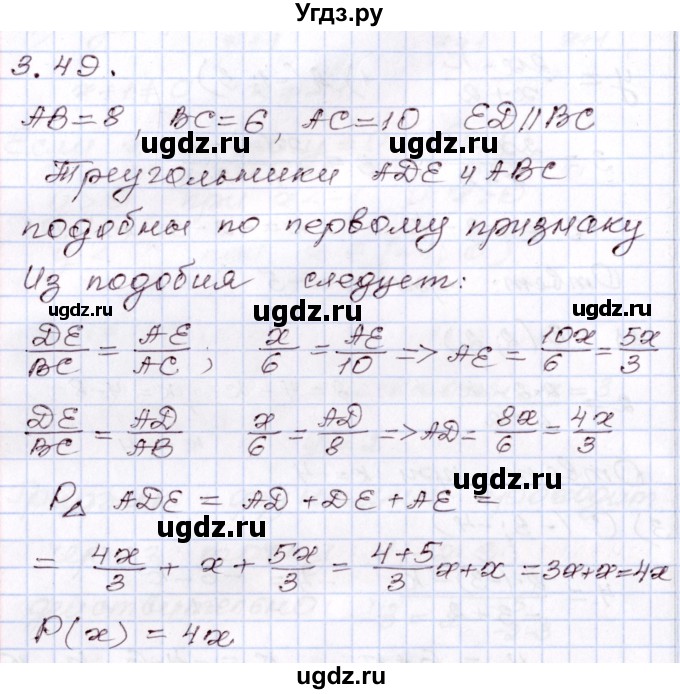 Угдз.ру
3.49.
AB=8, BC=6, AC=10 ED||BC
ugdz.ru ugdz.ru
Треугольники ADE и ABC
подобны по первому признаку
Из подобия следует:
ugdz.ru ugdz.ru ugdz.ru
DE/BC = AE/AC; x/6 = AE/10 => AE = 10x/6 = 5x/3
DE/BC = AD/AB x/6 = AD/8 => AD = 8x/6 = 4x/3
ugdz.ru
P△ ADE = AD + DE + AE =
ugdz.ru
= 4x/3 + x + 5x/3 = (4+5)/3 x + x = 3x+x=4x
ugdz.ru ugdz.ru
P(x) = 4x